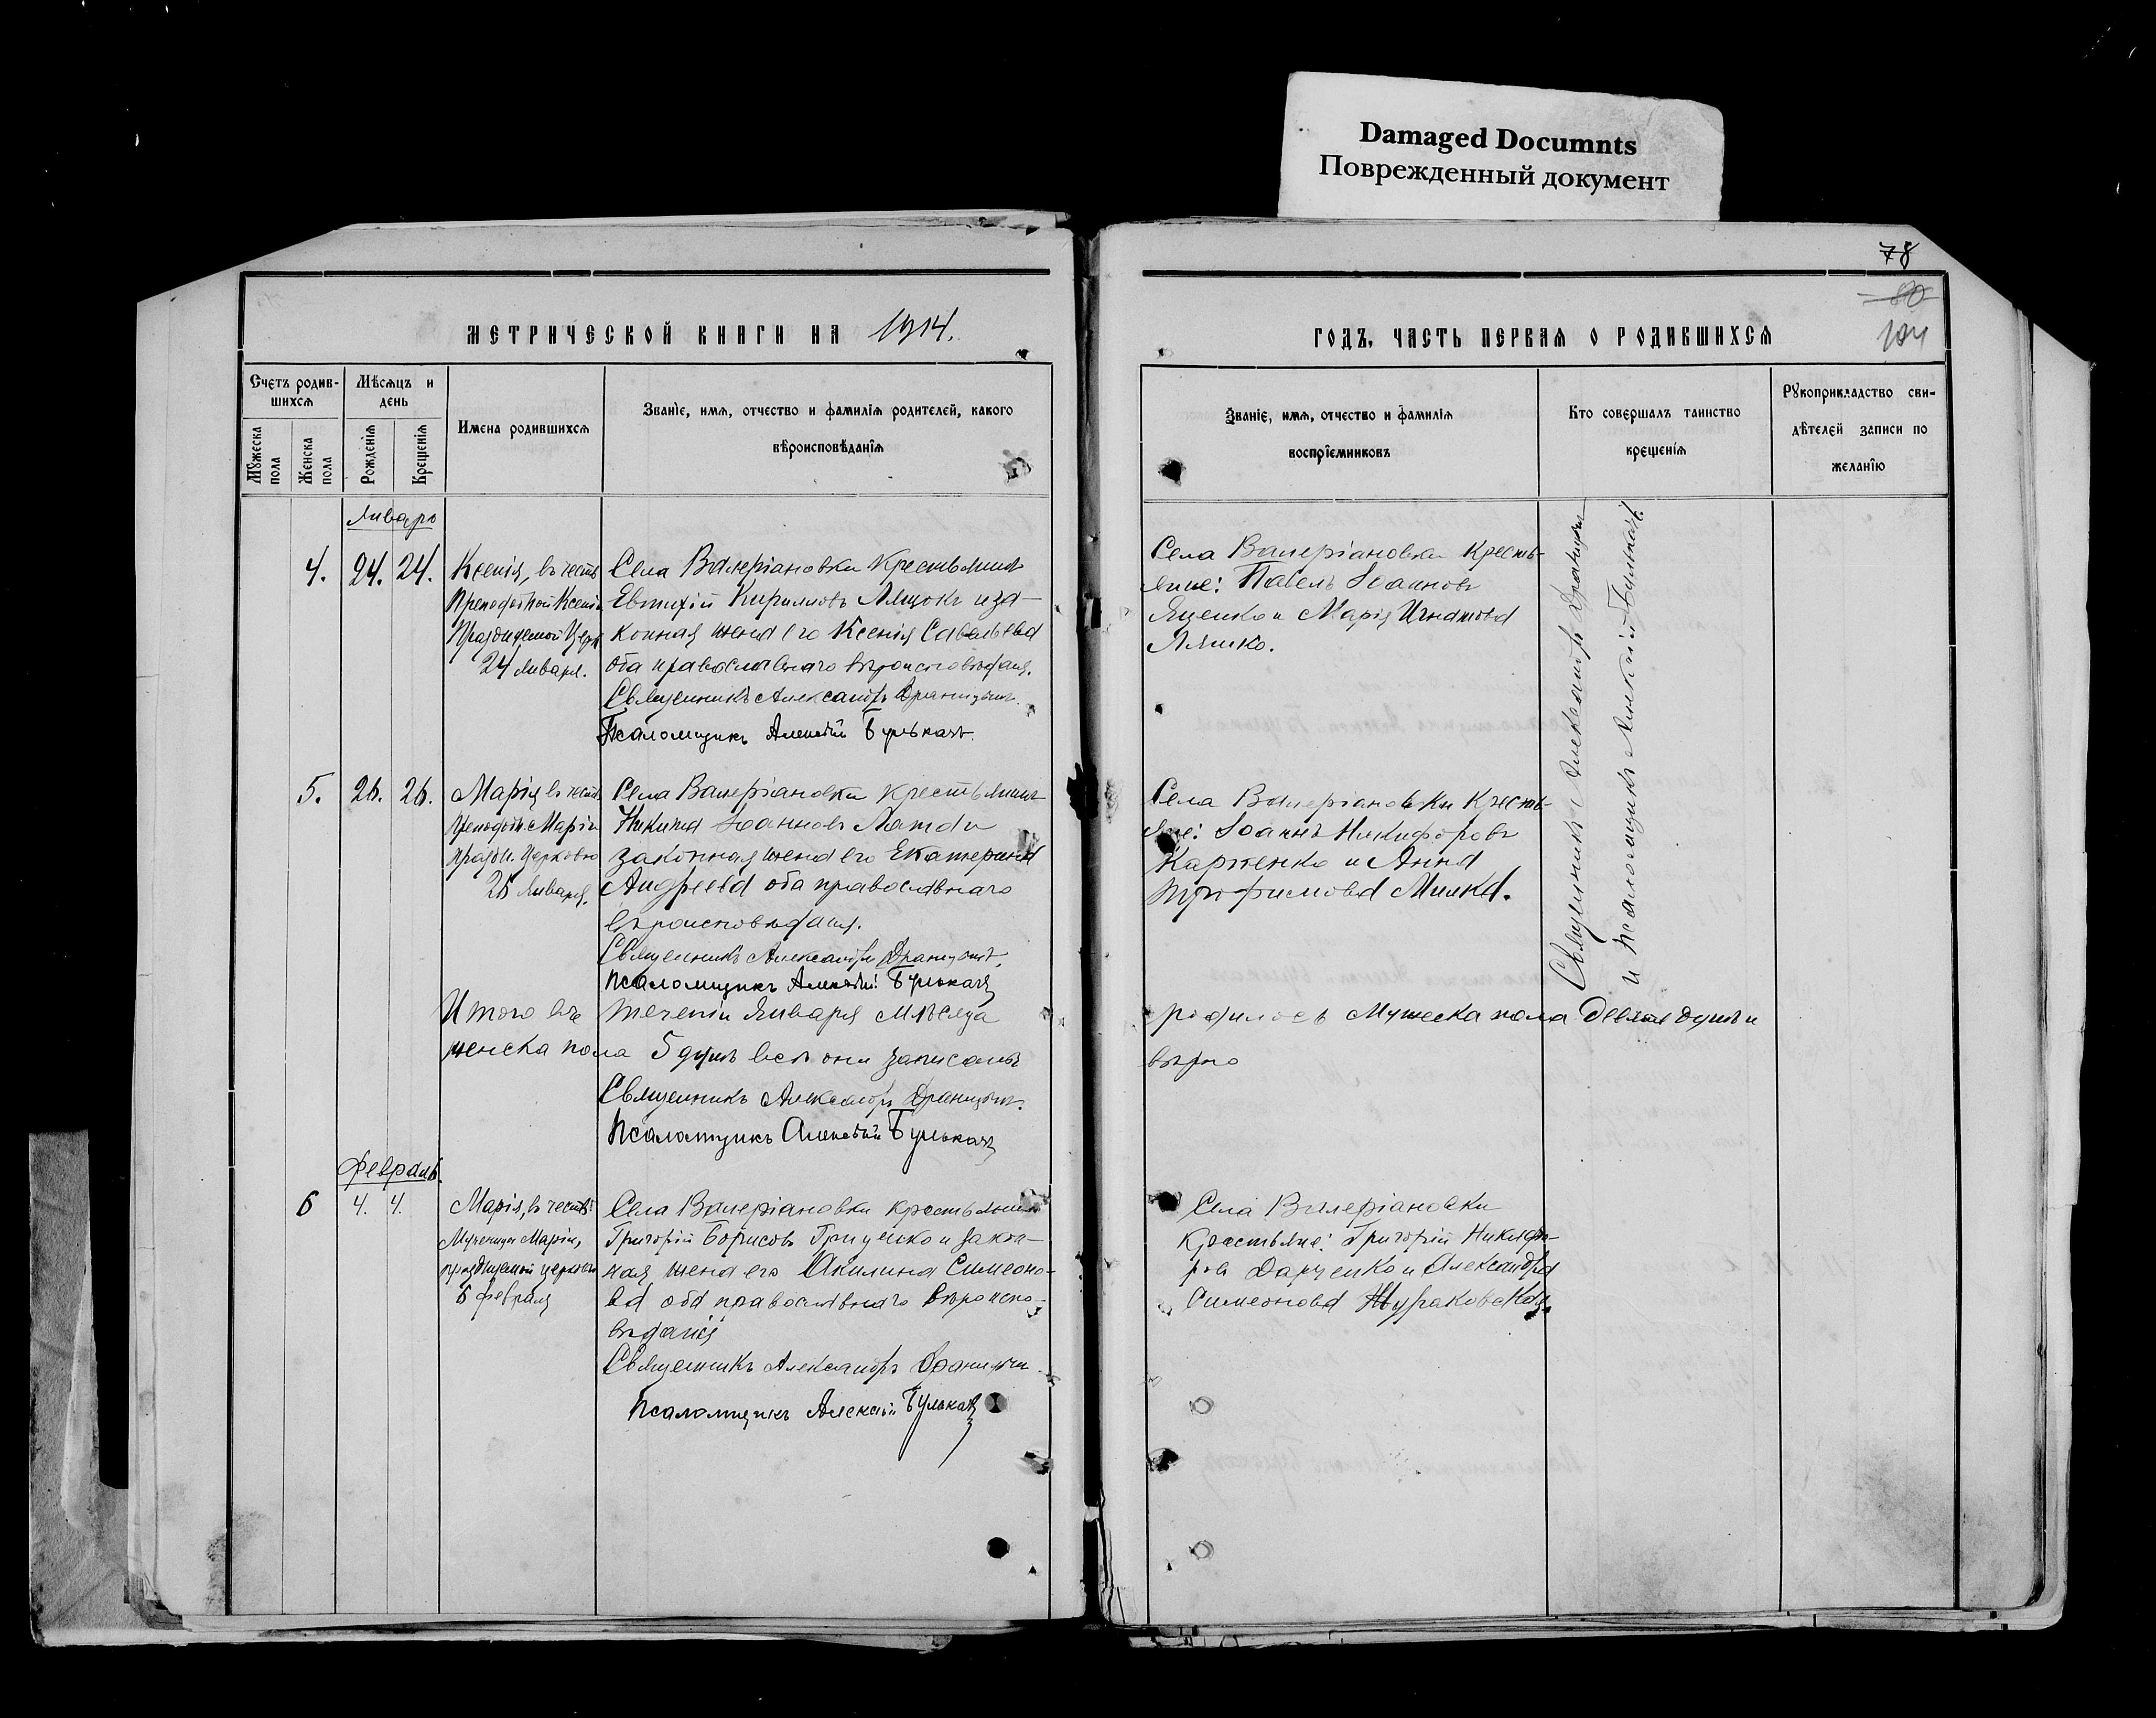 Damaged Documnts
Поврежденный документ
78
80
104
МЕТРИЧЕСКОЙ КНИГИ НА 1914.
ГОДЪ, ЧАСТЬ ПЕРВАЯ О РОДИВШИХСЯ
Счетъ родив-
шихся
Мѣсяцъ и
день
Мужеска
пола
Женска
пола
Рожденія
Крещенія
Имена родившихся
Званіе, имя, отчество и фамилія родителей, какого
вѣроисповѣданія
Званіе, имя, отчество и фамилія
воспріемниковъ
Кто совершалъ таинство
крещенія
Рукоприкладство сви-
дѣтелей записи по
желанію
Январь
4. 24. 24.
Ксенія, въ честь
Преподобной Ксеніи
Празднуемой Церк
24 Января.
Села Валеріановки Крестьянинъ
Евтихій Кирилловъ и за-
конная жена его Ксенія Савельева
оба православнаго вѣроисповѣданія.
Священникъ Александръ
Псаломщикъ Алексѣй Булькачъ.
Села Валеріановки Кресть-
яне: Павелъ Іоанновъ
Яценко и Марія Игнатова
Ляшко.
5. 26. 26.
Марія въ честь
Преподобн. Маріи
празди. Церковью
26 Января.
Села Валеріановки крестьянинъ
Никита Іоанновъ
законная жена его Екатерина
Андреева оба православнаго
вѣроисповѣданія.
Священникъ Александръ
Псаломщикъ Алексѣй Булькачъ
Села Валеріановки Кресть-
яне: Іоаннъ Никифоровъ
Карпенко и Анна
Трофимова Мишка.
Священникъ Александръ
и Псаломщикъ Алексѣй Булькачъ.
Итого въ теченіи Января мѣсяца
родилось Мужеска пола девять душъ и
женска пола 5 душъ всѣ они записаны
вѣрно
Священникъ Александръ
Псаломщикъ Алексѣй Булькачъ
Февраль.
6 4. 4.
Марія, въ честь
Мученицы Маріи,
празднуемой церковью
6 февраля
Села Валеріановки крестьянинъ
Григорій Борисовъ Гриценко и закон-
ная жена его Акилина Симеоно-
ва оба православнаго вѣроиспо-
вѣданія
Священникъ Александръ
Псаломщикъ Алексѣй Булькачъ
Села Валеріановки
Крестьяне: Григорій Никифо-
ровъ Дарченко и Александра
Симеонова Жураковская.